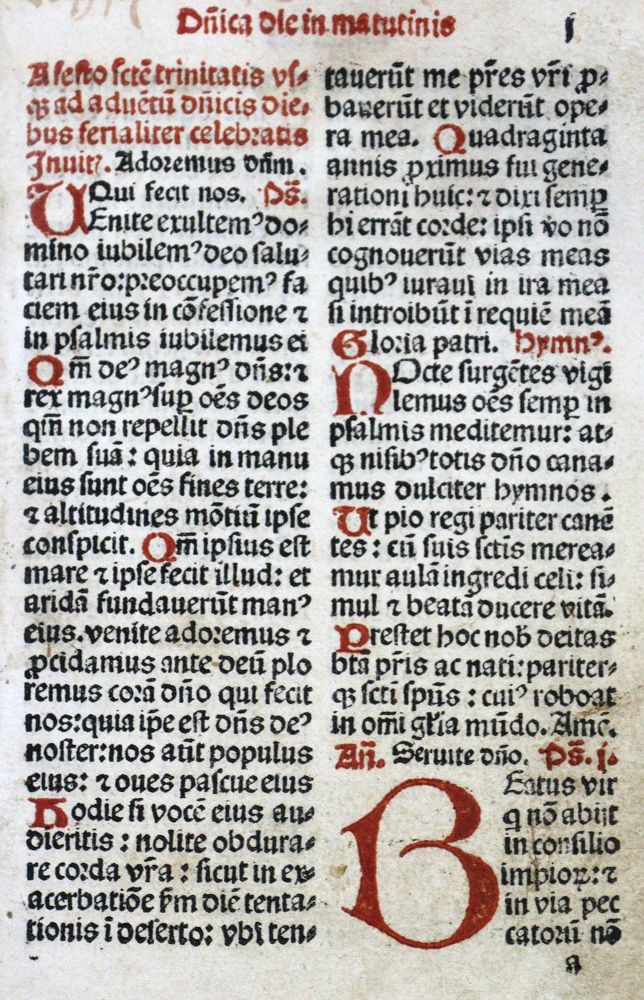 Dñica die in matutinis
I
A festo sctẽ trinitatis vſ⸗
qꝫ ad aduẽtũ dñicis die⸗
bus ferialiter celebꝛatis
Inuitꝭ. Adoremus dñm.
Qui fecit nos. Pſ.
VEnite exultemꝰ do⸗
mino iubilemꝰ deo ſalu⸗
tari nr̃o: pꝛeoccupemꝰ fa
ciem eius in cõfeſſione ⁊
in pſalmis iubilemus ei
Qm̃ deꝰ magnꝰ dñs: ⁊
rex magnꝰ ſuꝑ oẽs deos
qm̃ non repellit dñs ple
bem ſuã: quia in manu
eius ſunt oẽs fines terre:
⁊ altitudines mõtiũ ipſe
conſpicit. Qm̃ ipſius eſt
mare ⁊ ipſe fecit illud: et
aridã fundauerũt manꝰ
eius. venite adoꝛemus ⁊
ꝓcidamus ante deũ plo
remus coꝛã dño qui fecit
nos: quia ip̃e eſt dñs deꝰ
noſter: nos aũt populus
eius: ⁊ oues paſcue eius
Hodie ſi vocẽ eius au⸗
dieritis: nolite obdura⸗
re coꝛda vr̃a: ſicut in ex⸗
acerbatiõe ẜm diẽ tenta⸗
tionis ĩ deſerto: vbi ten⸗
tauerũt me pr̃es vr̃i ꝓ⸗
bauerũt et viderũt ope⸗
ra mea. Quadraginta
annis ꝓximus fui gene⸗
rationi huic: ⁊ dixi ſemꝑ
hi errãt coꝛde: ipſi vo nõ
cognouerũt vias meas
quibꝰ iuraui in ira mea
ſi introibũt ĩ requiẽ meã
Gloꝛia patri. Hymnꝰ.
NOcte ſurgẽtes vigi
lemus oẽs ſemꝑ in
pſalmis meditemur: at⸗
qꝫ niſibꝰ totis dño cana⸗
mus dulciter hymnos.
Ut pio regi pariter canẽ
tes: cũ ſuis ſctis merea⸗
mur aulã ingredi celi: ſi⸗
mul ⁊ beatã ducere vitã.
Pꝛeſtet hoc nob̃ deitas
btã pr̃is ac nati: pariter⸗
qꝫ ſcti ſpũs: cuiꝰ roboat
in om̃i gl̃ia mũdo. Amẽ.
Añ. Seruite dño. Pſ. j.
BEatus vir
q̃ nõ abijt
in conſilio
impioꝝ: ⁊
in via pec
catoꝛũ nõ
a